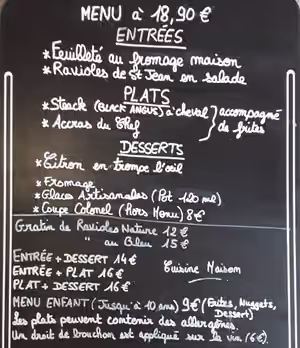 MENU à 18,90 €
ENTRÉES
* Feuilleté au fromage maison
* Ravioles de St Jean en salade
PLATS
* Steack (BLACK ANGUS) à cheval } accompagné
* Accras du Chef } de frites
DESSERTS
* Citron en trompe l'oeil
* Fromage
* Glaces Artisanales (Pot 120 ml)
* Coupe Colonel (Hors Menu) 8€
Gratin de Ravioles Nature 12 €
" au Bleu 15 €
ENTRÉE + DESSERT 14€
ENTRÉE + PLAT 16€ Cuisine Maison
PLAT + DESSERT 16€
MENU ENFANT (Jusqu'à 10 ans) 9€ (Frites, Nuggets,
Dessert)
Les plats peuvent contenir des allergènes.
Un droit de bouchon est appliqué sur le vin (6€).